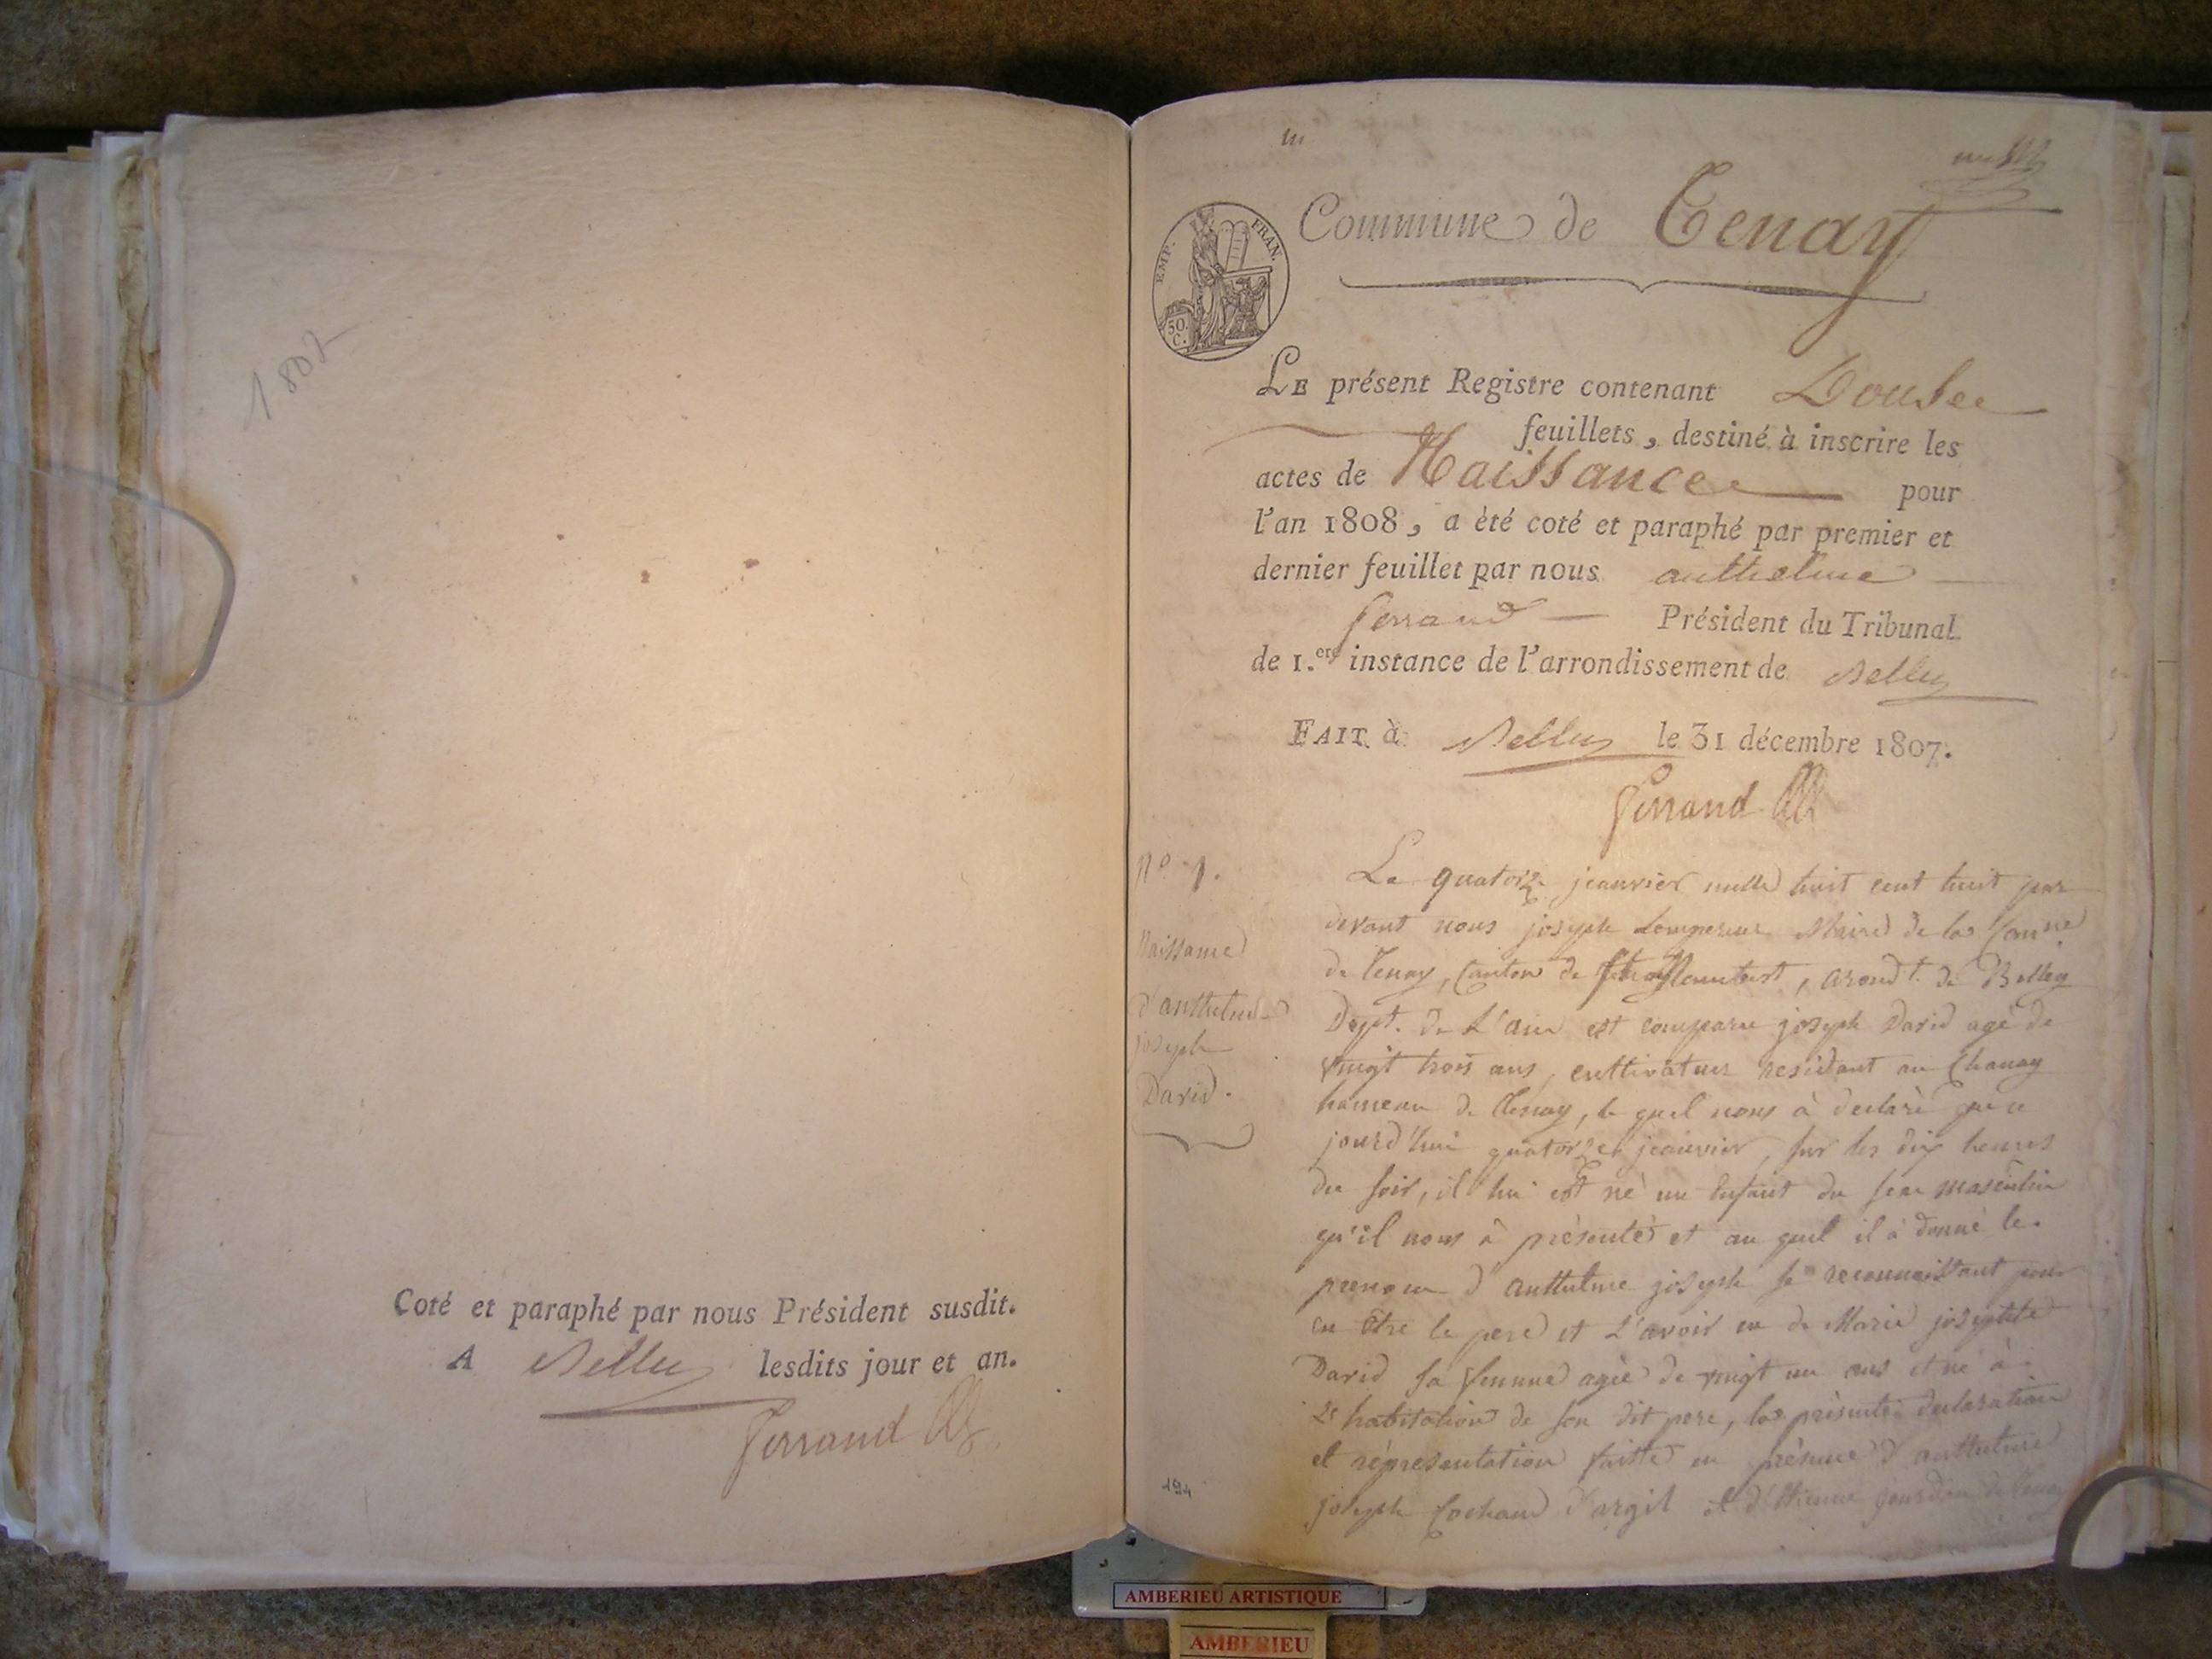 1807
Coté et paraphé par nous Président susdit.
A Belley lesdits jour et an.
Ferrand
Commune de Tenay
EMP. FRAN.
50. C.
LE présent Registre contenant Douse
feuillets, destiné à inscrire les
actes de Naissance pour
l'an 1808, a été coté et paraphé par premier et
dernier feuillet par nous anthelme
ferrand Président du Tribunal
de 1.ere instance de l'arrondissement de Belley
FAIT à Belley le 31 décembre 1807.
Ferrand
N° 1.
Naissance
d'anthelme
joseph
David.
Le quatorze jeanvier mille huit cent huit par
devant nous joseph Lempereur Maire de la Comne
de Tenay, Canton de, arondt. de Belley
Dept. de L'ain est comparu joseph David agé de
vingt trois ans, cultivateur residant au Chanay
hameau de Tenay, le quel nous à declaré que ce
jourd'hui quatorze jeanvier, sur les dix heures
du soir, il lui est né un Enfant du sexe masculin
qu'il nous à présenté et au quel il à donné le
prenom d'anthelme joseph se reconnaissant pour
en être le pere et L'avoir eu de Marie josephte
David sa femme agée de vingt un ans et né à
L'habitation de son dit pere, la présente declaration
et répresentation faitte en présence d'anthelme
joseph Cochand d'argil et d'Etienne jourdan de Tenay
194
AMBERIEU ARTISTIQUE
AMBERIEU